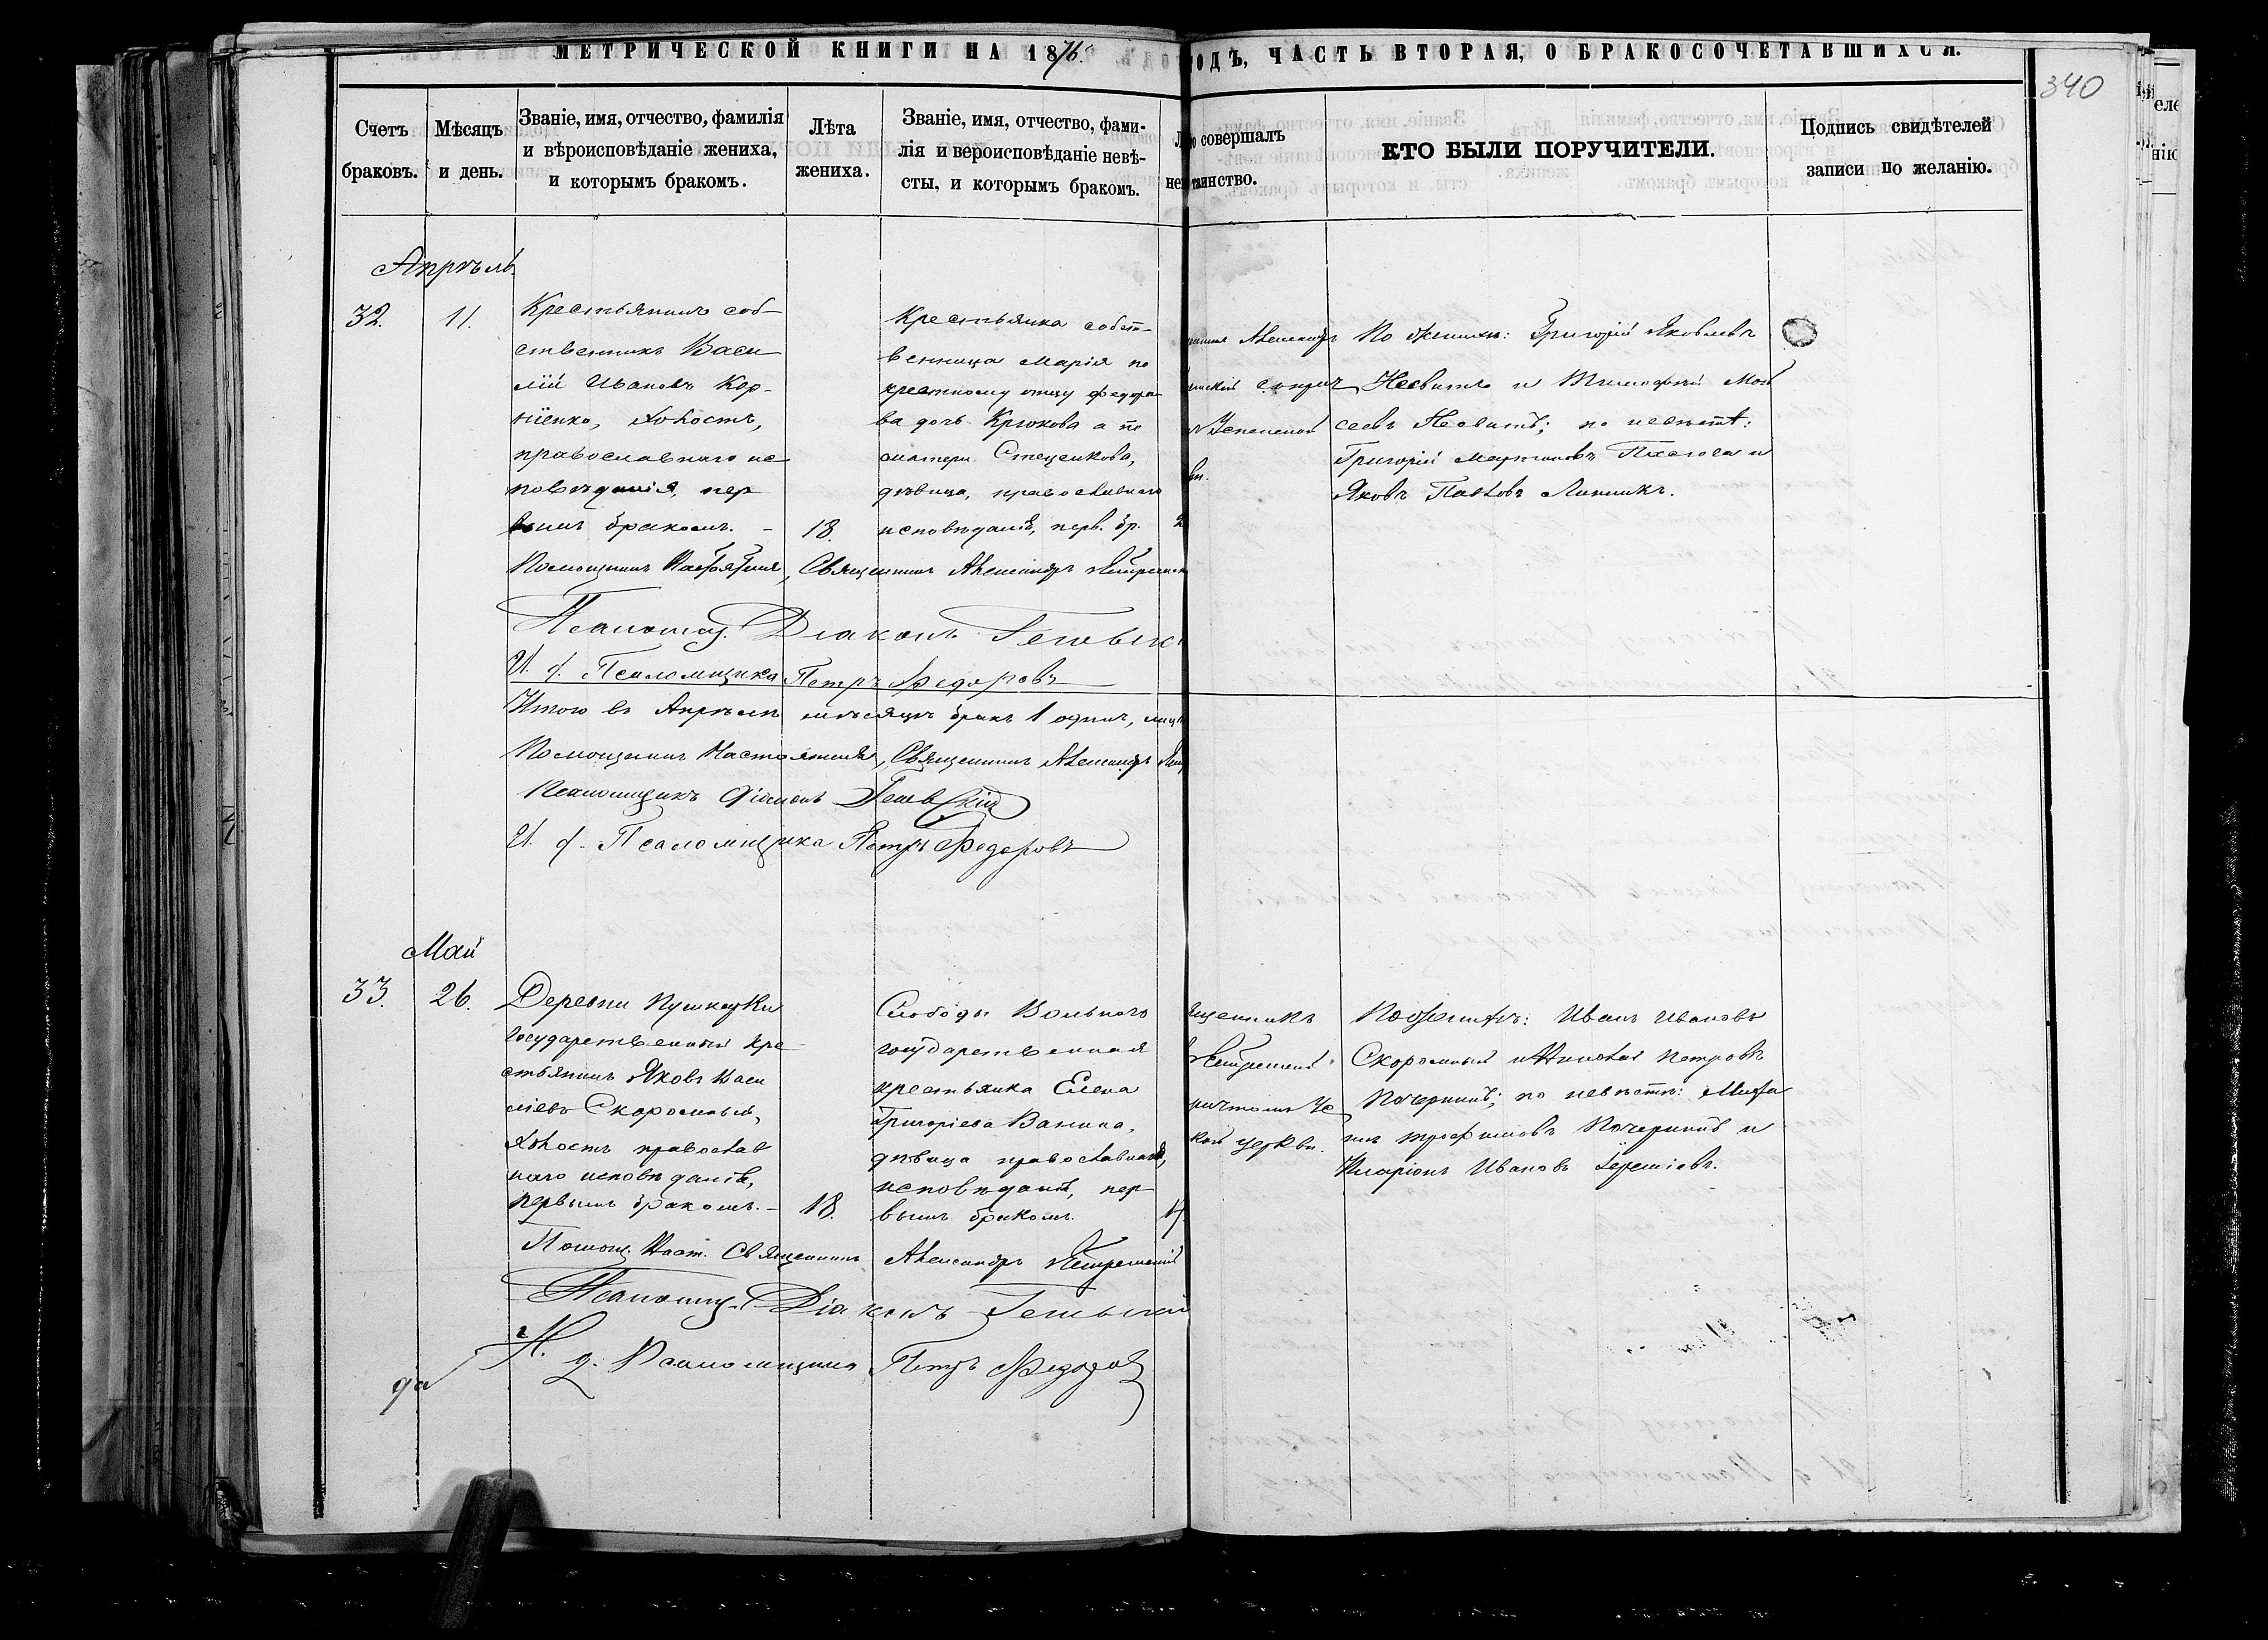 МЕТРИЧЕСКОЙ КНИГИ НА 1876
ГОДЪ, ЧАСТЬ ВТОРАЯ, О БРАКОСОЧЕТАВШИХСЯ.
340
Счетъ браковъ.
Мѣсяцъ и день.
Званіе, имя, отчество, фамилія
и вѣроисповѣданіе жениха,
и которымъ бракомъ.
Лѣта
жениха.
Званіе, имя, отчество, фами-
лія и вероисповѣданіе невѣ-
сты, и которымъ бракомъ.
совершалъ
таинство.
КТО БЫЛИ ПОРУЧИТЕЛИ.
Подпись свидѣтелей
записи по желанію.
Апрѣль
32.
11.
Крестьянинъ соб-
ственникъ Васи
лій Ивановъ Кор-
ніенко, холостъ,
православнаго ис-
повѣданія, пер
вымъ бракомъ. -
18.
Крестьянка собст-
венница Марія по
крестному отцу Федоро-
ва дочь Крюкова а по
матери Стеценкова,
дѣвица, православнаго
исповѣданія, перв. бр.
2
Александръ
Успенской
По женихѣ: Григорій Яковлевъ
Несвитъ и Тимофей Мои
сеевъ Несвитъ; по невѣстѣ:
Григорій Мартиновъ и
Яковъ Павловъ Линникъ.
Помощникъ Настоятеля, Священникъ Александръ
Псаломщ. Діаконъ
И. д. Псаломщика Петръ Федоровъ
Итого въ Апрѣлѣ мѣсяцѣ бракъ 1 одинъ,
Помощникъ Настоятеля, Священникъ Александръ
Псаломщикъ Діаконъ
И. д. Псаломщика Петръ Федоровъ
Май
33.
26.
Деревни Пушкарки
государственный кре-
стьянинъ Яковъ Васи
ліевъ Скоромный,
холостъ православ
наго исповѣданія,
первымъ бракомъ. -
18.
Слободы Вольного
государственная
крестьянка Елена
Григоріева Ванина,
дѣвица православнаго,
исповѣданія, пер-
вымъ бракомъ.
17
щенникъ
причтомъ Ус
кой церкви.
По женихѣ: Иванъ Ивановъ
Скоромный и Николай Петровъ
по невѣстѣ: Миха
илъ Трофимовъ и
Иларіонъ Ивановъ
Помощ. Наст. Священникъ Александръ
Псаломщ. Діаконъ
И. д. Псаломщика Петръ Федоровъ